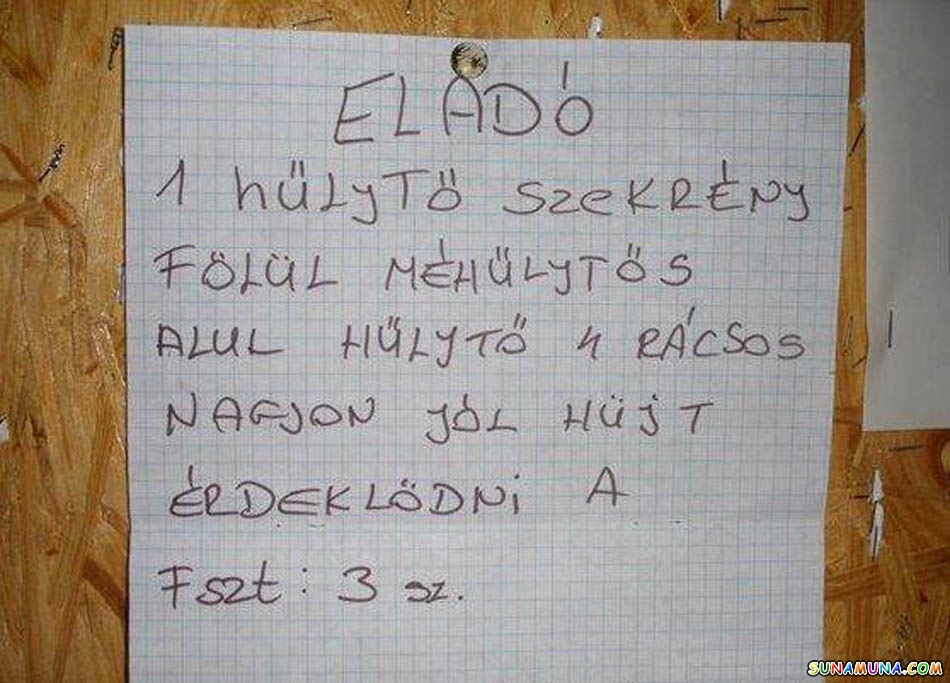 ELADÓ
1 HŰLYTŐ SZEKRÉNY
FÖLÜL MÉHŰLYTŐS
ALUL HŰLYTŐ 4 RÁCSOS
NAGJON JÓL HÜJT
ÉRDEKLŐDNI A
Fszt: 3 sz.
SUNAMUNA.COM